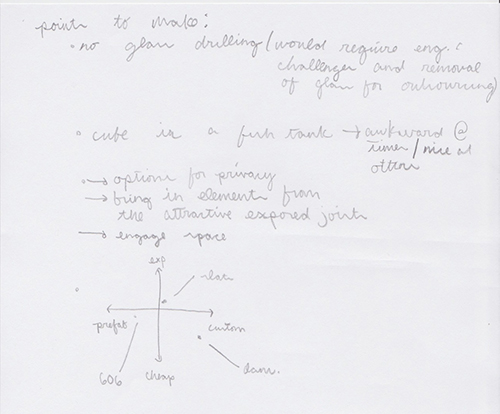 points to make:
• no glass drilling/would require eng.
challenges and removal
of glass for outsourcing)
• cube is a fish tank → awkward @
times/nice at
others
• → options for privacy
→ bring in elements from
the attractive exposed joints
→ engage space
exp
prefab
custom
606
cheap